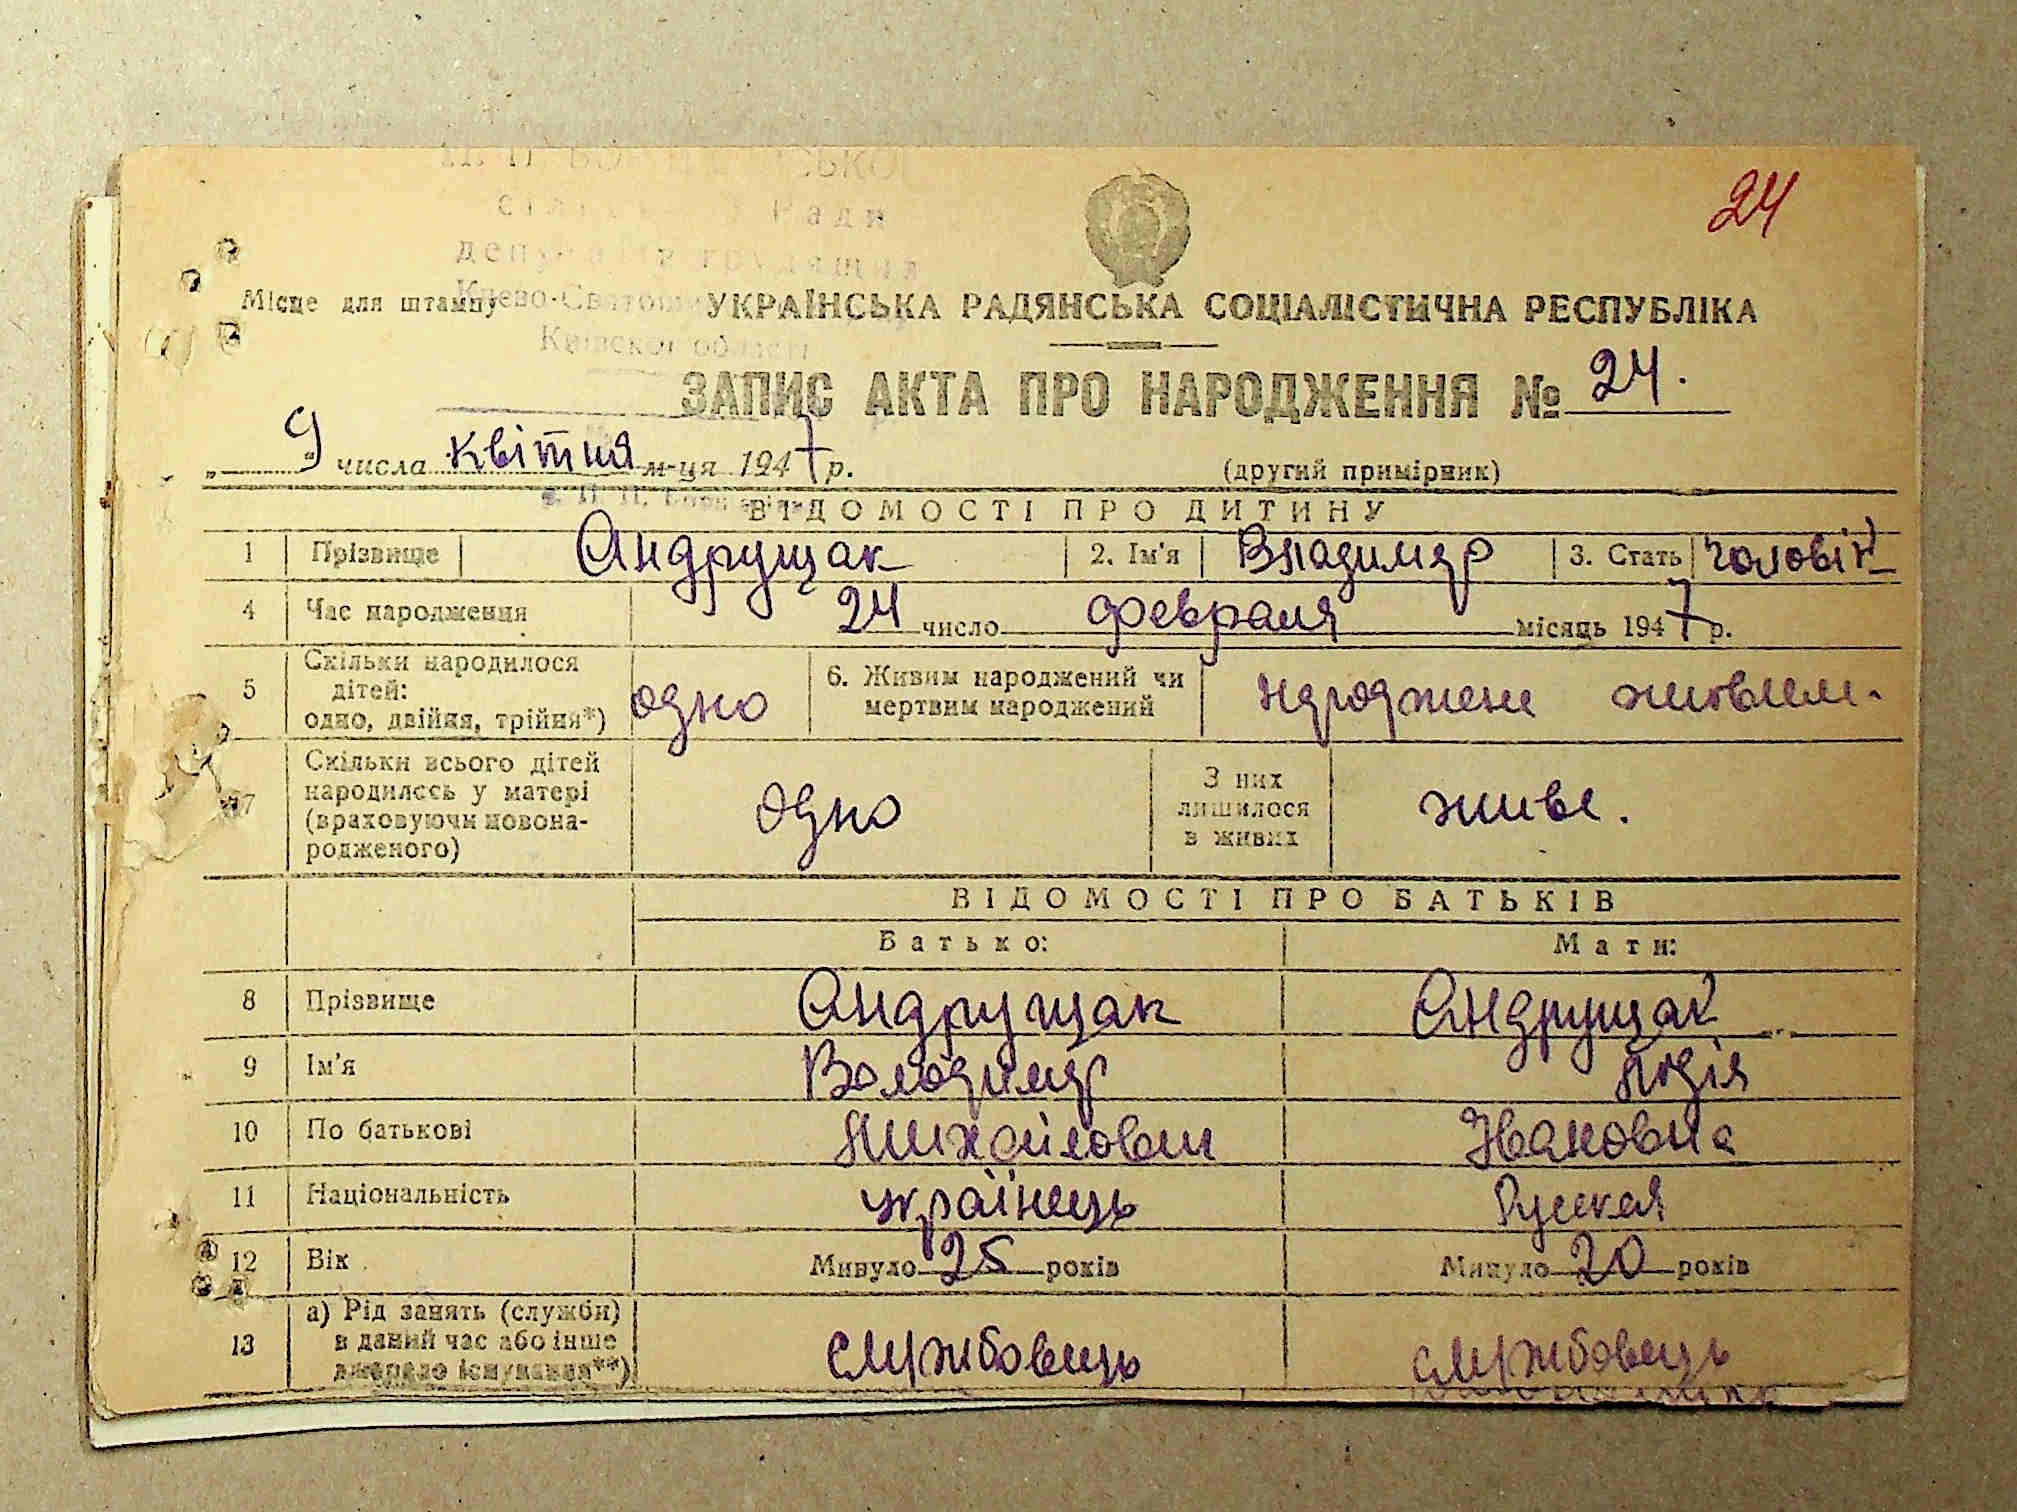 24
сільської Ради
депутатів трудящих
Києво-Святошинського
Київської області
Місце для штампу
УКРАЇНСЬКА РАДЯНСЬКА СОЦІАЛІСТИЧНА РЕСПУБЛІКА
ЗАПИС АКТА ПРО НАРОДЖЕННЯ № 24.
„ 9 " числа квітня м-ця 1947 р. (другий примірник)
ВІДОМОСТІ ПРО ДИТИНУ
1 Прізвище Андрущак 2. Ім'я Владимир 3. Стать чоловік
4 Час народження 24 число февраля місяць 1947 р.
5 Скільки народилося дітей: одно, двійня, трійня*) одно 6. Живим народжений чи мертвим народжений народжене живим.
7 Скільки всього дітей народилось у матері (враховуючи новонародженого) одно З них лишилося в живих живе.
ВІДОМОСТІ ПРО БАТЬКІВ
Батько: Мати:
8 Прізвище Андрущак Андрущак
9 Ім'я Володимир Лідія
10 По батькові Михайлович Івановна
11 Національність українець Русская
12 Вік Минуло 25 років Минуло 20 років
13 а) Рід занять (служби) в даний час або інше джерело існування**) службовець службовець